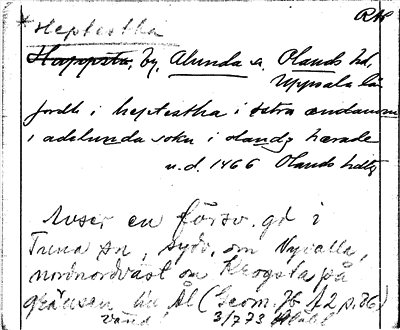 RAP
*Heptestha
Happsta, by, Alunda s. Olands hd,
Uppsala län
jordh i heptestha i östra ændanom
i adelunda sokn i olandz hærade
u.d. 1466 Olands hdtg
Avser en försv. gd i
Tuna sn, sydv. om Nyvalla,
nordnordväst om Krogsta på
gränsen till Ål (Geom. Jb A2 p. 36)
3/7 73